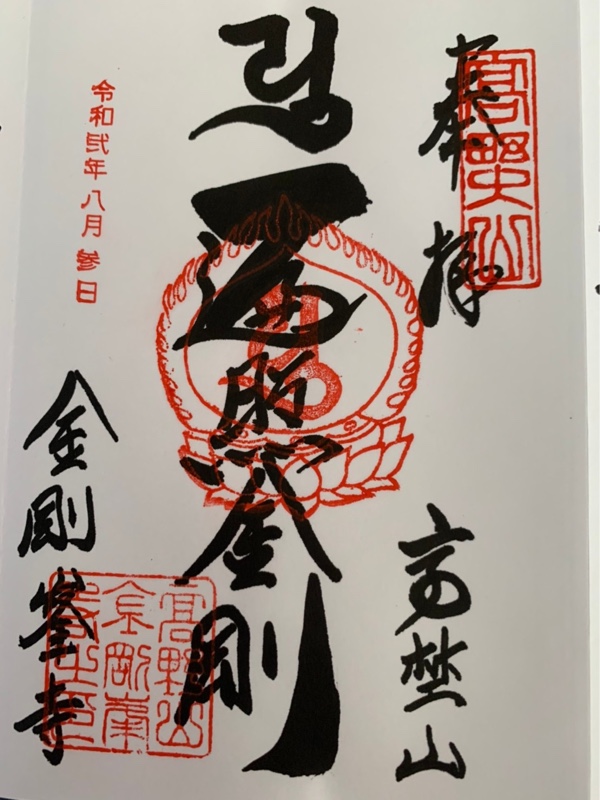 奉拝
高野山
高埜山
遍照金剛
令和弐年八月参日
金剛峯寺
高野山
金剛峯
寺之印